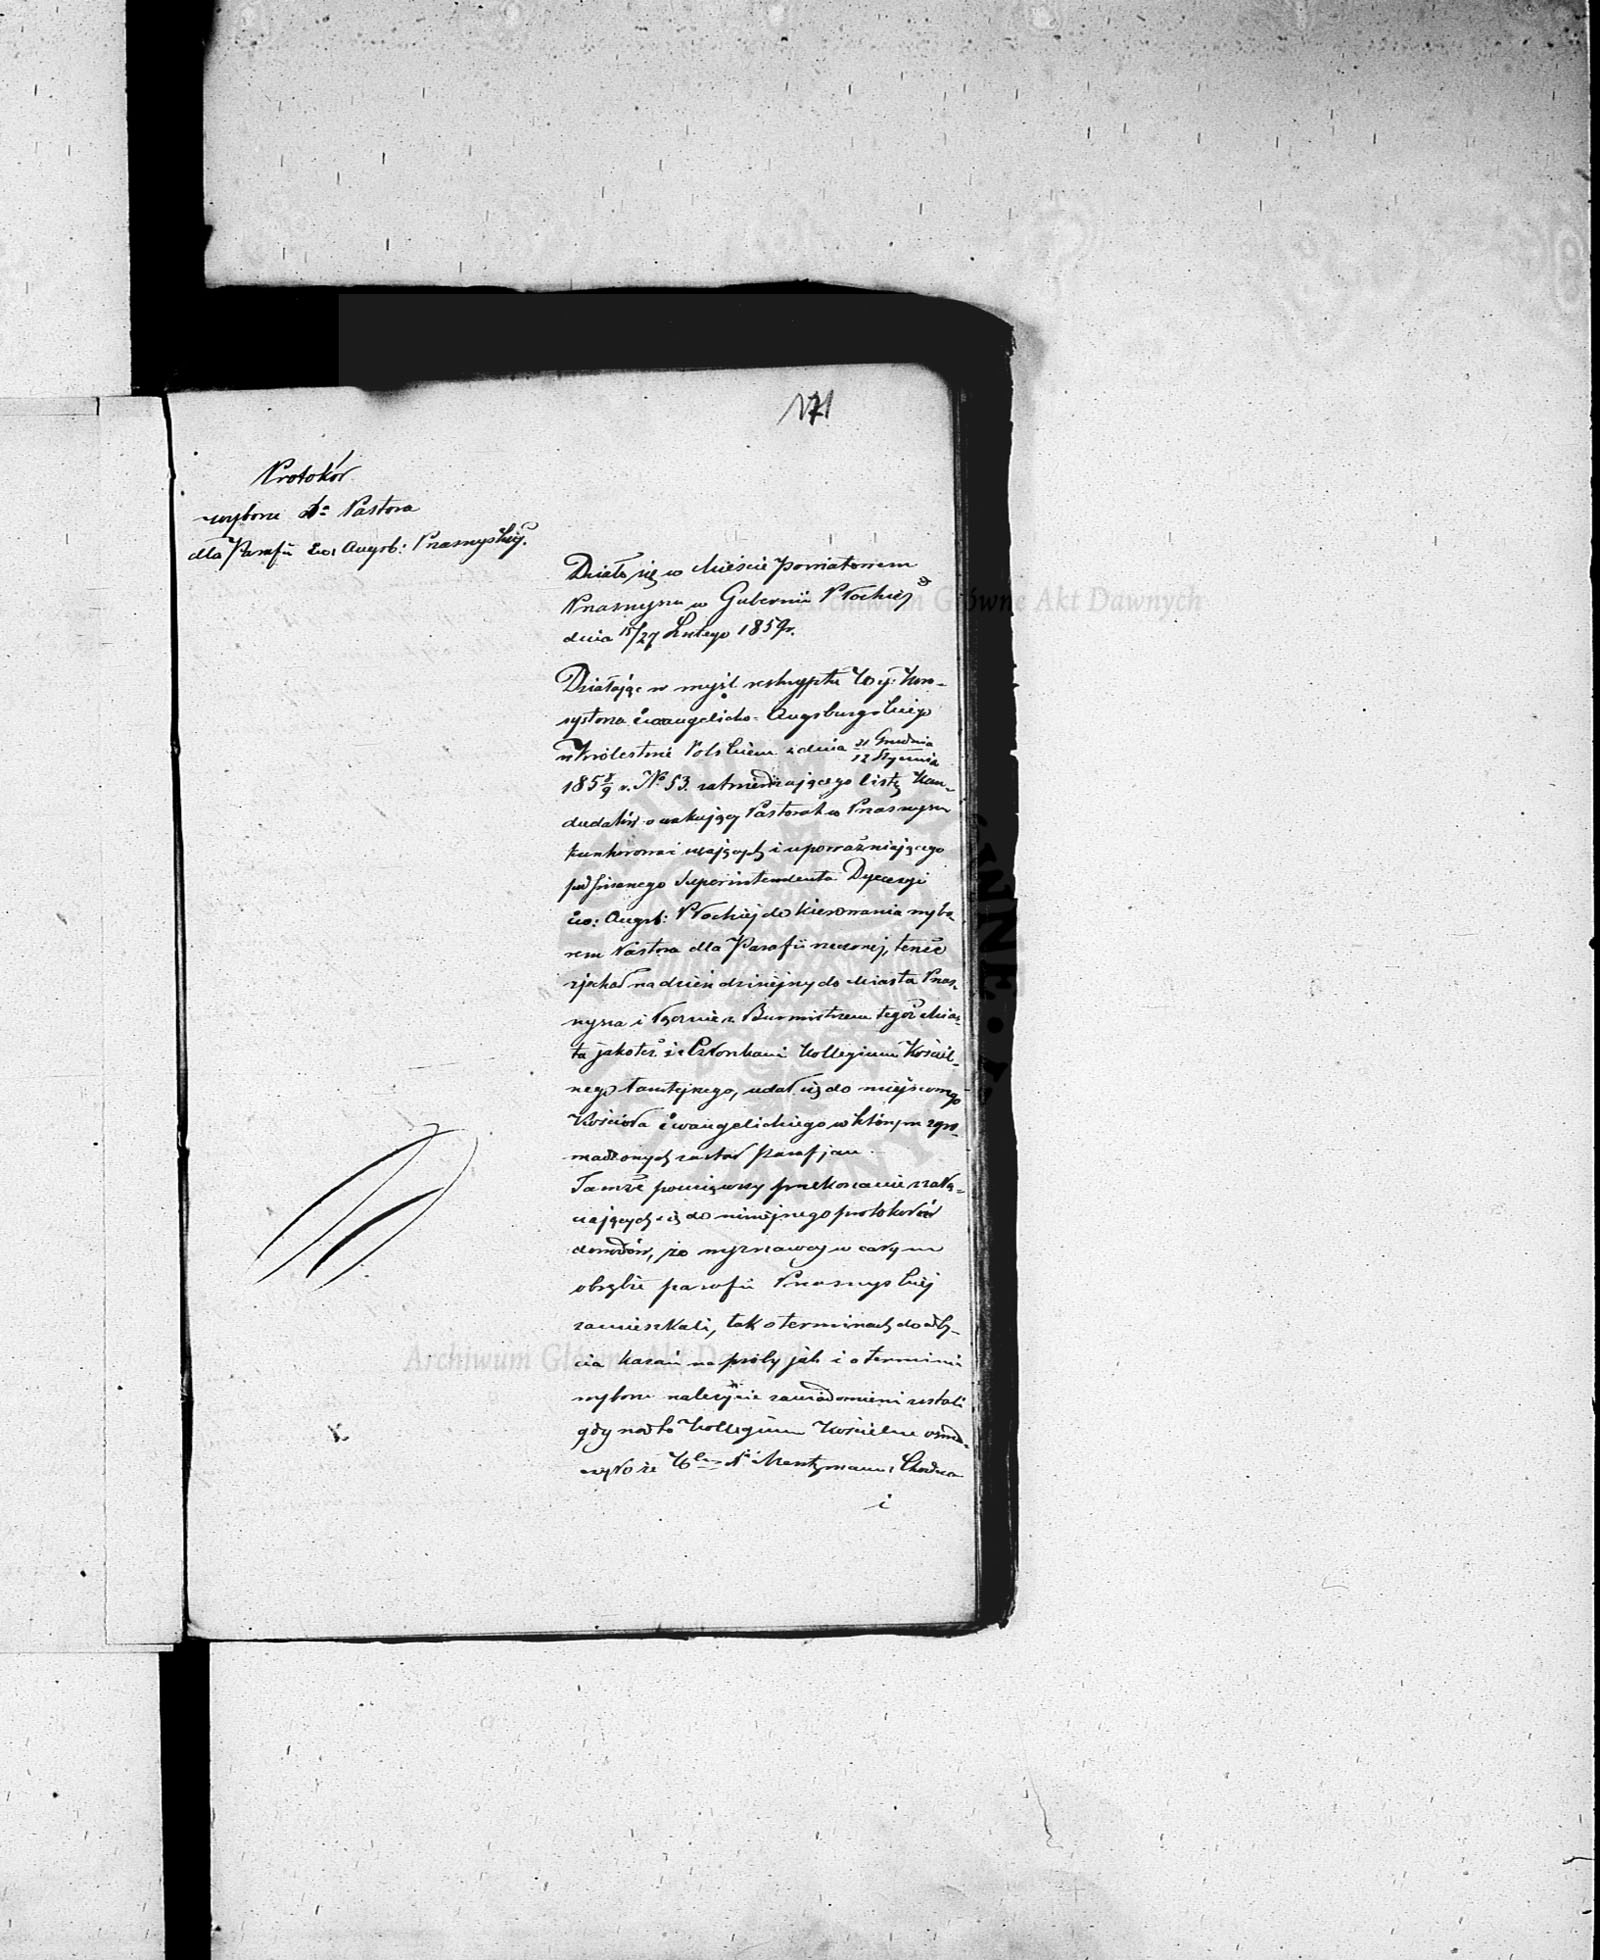 171
Protokół
wyboru Xa Pastora
dla Parafii Ew: Augsb: Prasnyskiéj.
Działo się w Mieście Powiatowem
Prasnyszu w Gubernii Płockiéj
dnia 15/27 Lutego 1859 r.
Działając w myśl reskryptu Kon-
systorza Ewangelicko-Augsburgskiego
w Królestwie Polskiem z dnia 31 Grudnia / 12 Stycznia
185 8/9 r. No 53. zatwierdzającego listę Kan-
dydatów o wakujący Pastorat w Prasnyszu
konkurować mających i upoważniającego
podpisanego Superintendenta Dyecezyi
Ew: Augsb: Płockiej do kierowania wybo
rem Pastora dla Parafii rzeczonej, tenże
zjechał na dzień dzisiejszy do Miasta Pras-
nysza i łącznie z Burmistrzem tegoż Mias-
ta jakoteż i z Członkami Kollegium Kościel-
nego tamtejszego, udał się do miejscowego
Kościoła Ewangelickiego w którym zgro-
madzonych zastał Parafjan.
Tamże powziąwszy przekonanie z załą-
czających się do niniejszego protokołu
dowodów, że wyznawcy w całym
obrębie parafii Prasnyskiej
zamieszkali, tak o terminach do odby-
cia kazań na próby jak i o terminie
wyboru należycie zawiadomieni zostali
gdy nadto Kollegium Kościelne oświad-
czyło że Mentzmann,
i
Archiwum Główne Akt Dawnych
Archiwum Główne Akt Dawnych